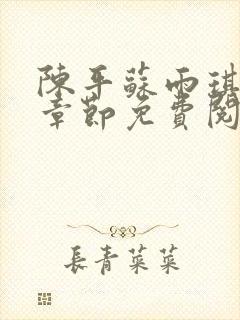 陳平蘇雨琪
章節免費閱
長青菜菜